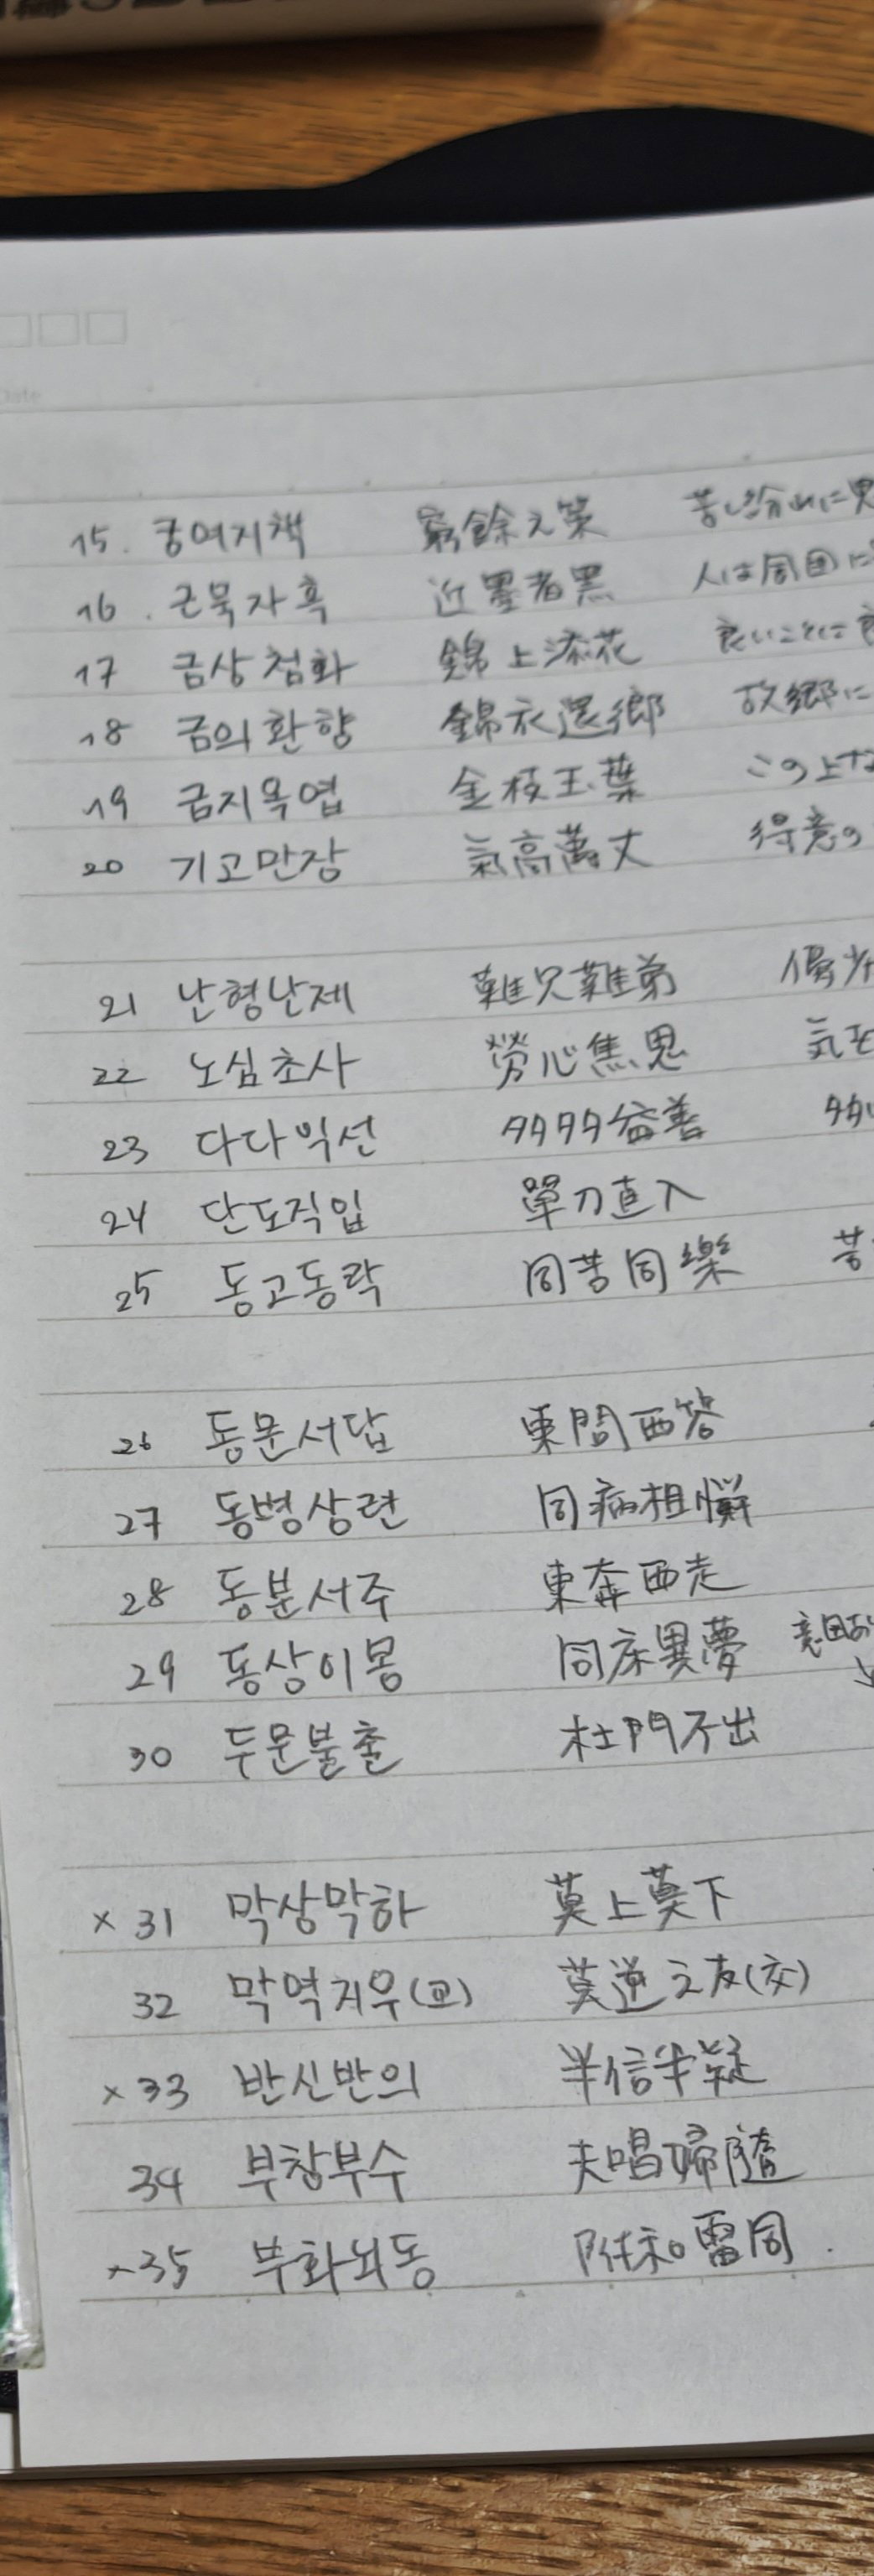 Date
15. 궁여지책 窮餘之策 苦し紛れに思
16. 근묵자흑 近墨者黒 人は周囲に
17 금상첨화 錦上添花 良いことに良
18 금의환향 錦衣還鄕 故郷に
19 금지옥엽 金枝玉葉 この上な
20 기고만장 氣高萬丈 得意の
21 난형난제 難兄難弟 優劣
22 노심초사 勞心焦思 気を
23 다다익선 多多益善 多い
24 단도직입 單刀直入
25 동고동락 同苦同樂 苦
26 동문서답 東問西答
27 동병상련 同病相憐
28 동분서주 東奔西走
29 동상이몽 同床異夢
30 두문불출 杜門不出
×31 막상막하 莫上莫下
32 막역지우(교) 莫逆之友(交)
×33 반신반의 半信半疑
34 부창부수 夫唱婦隨
×35 부화뇌동 附和雷同.